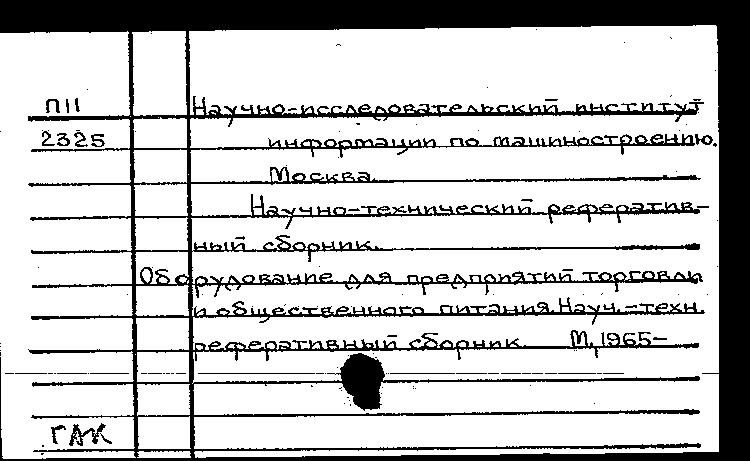 П11
Научно-исследовательский институт
2325
информации по машиностроению.
Москва.
Научно-технический рефератив-
ный сборник.
Оборудование для предприятий торговли
и общественного питания. Науч.-техн.
реферативный сборник. М, 1965-
ГАК